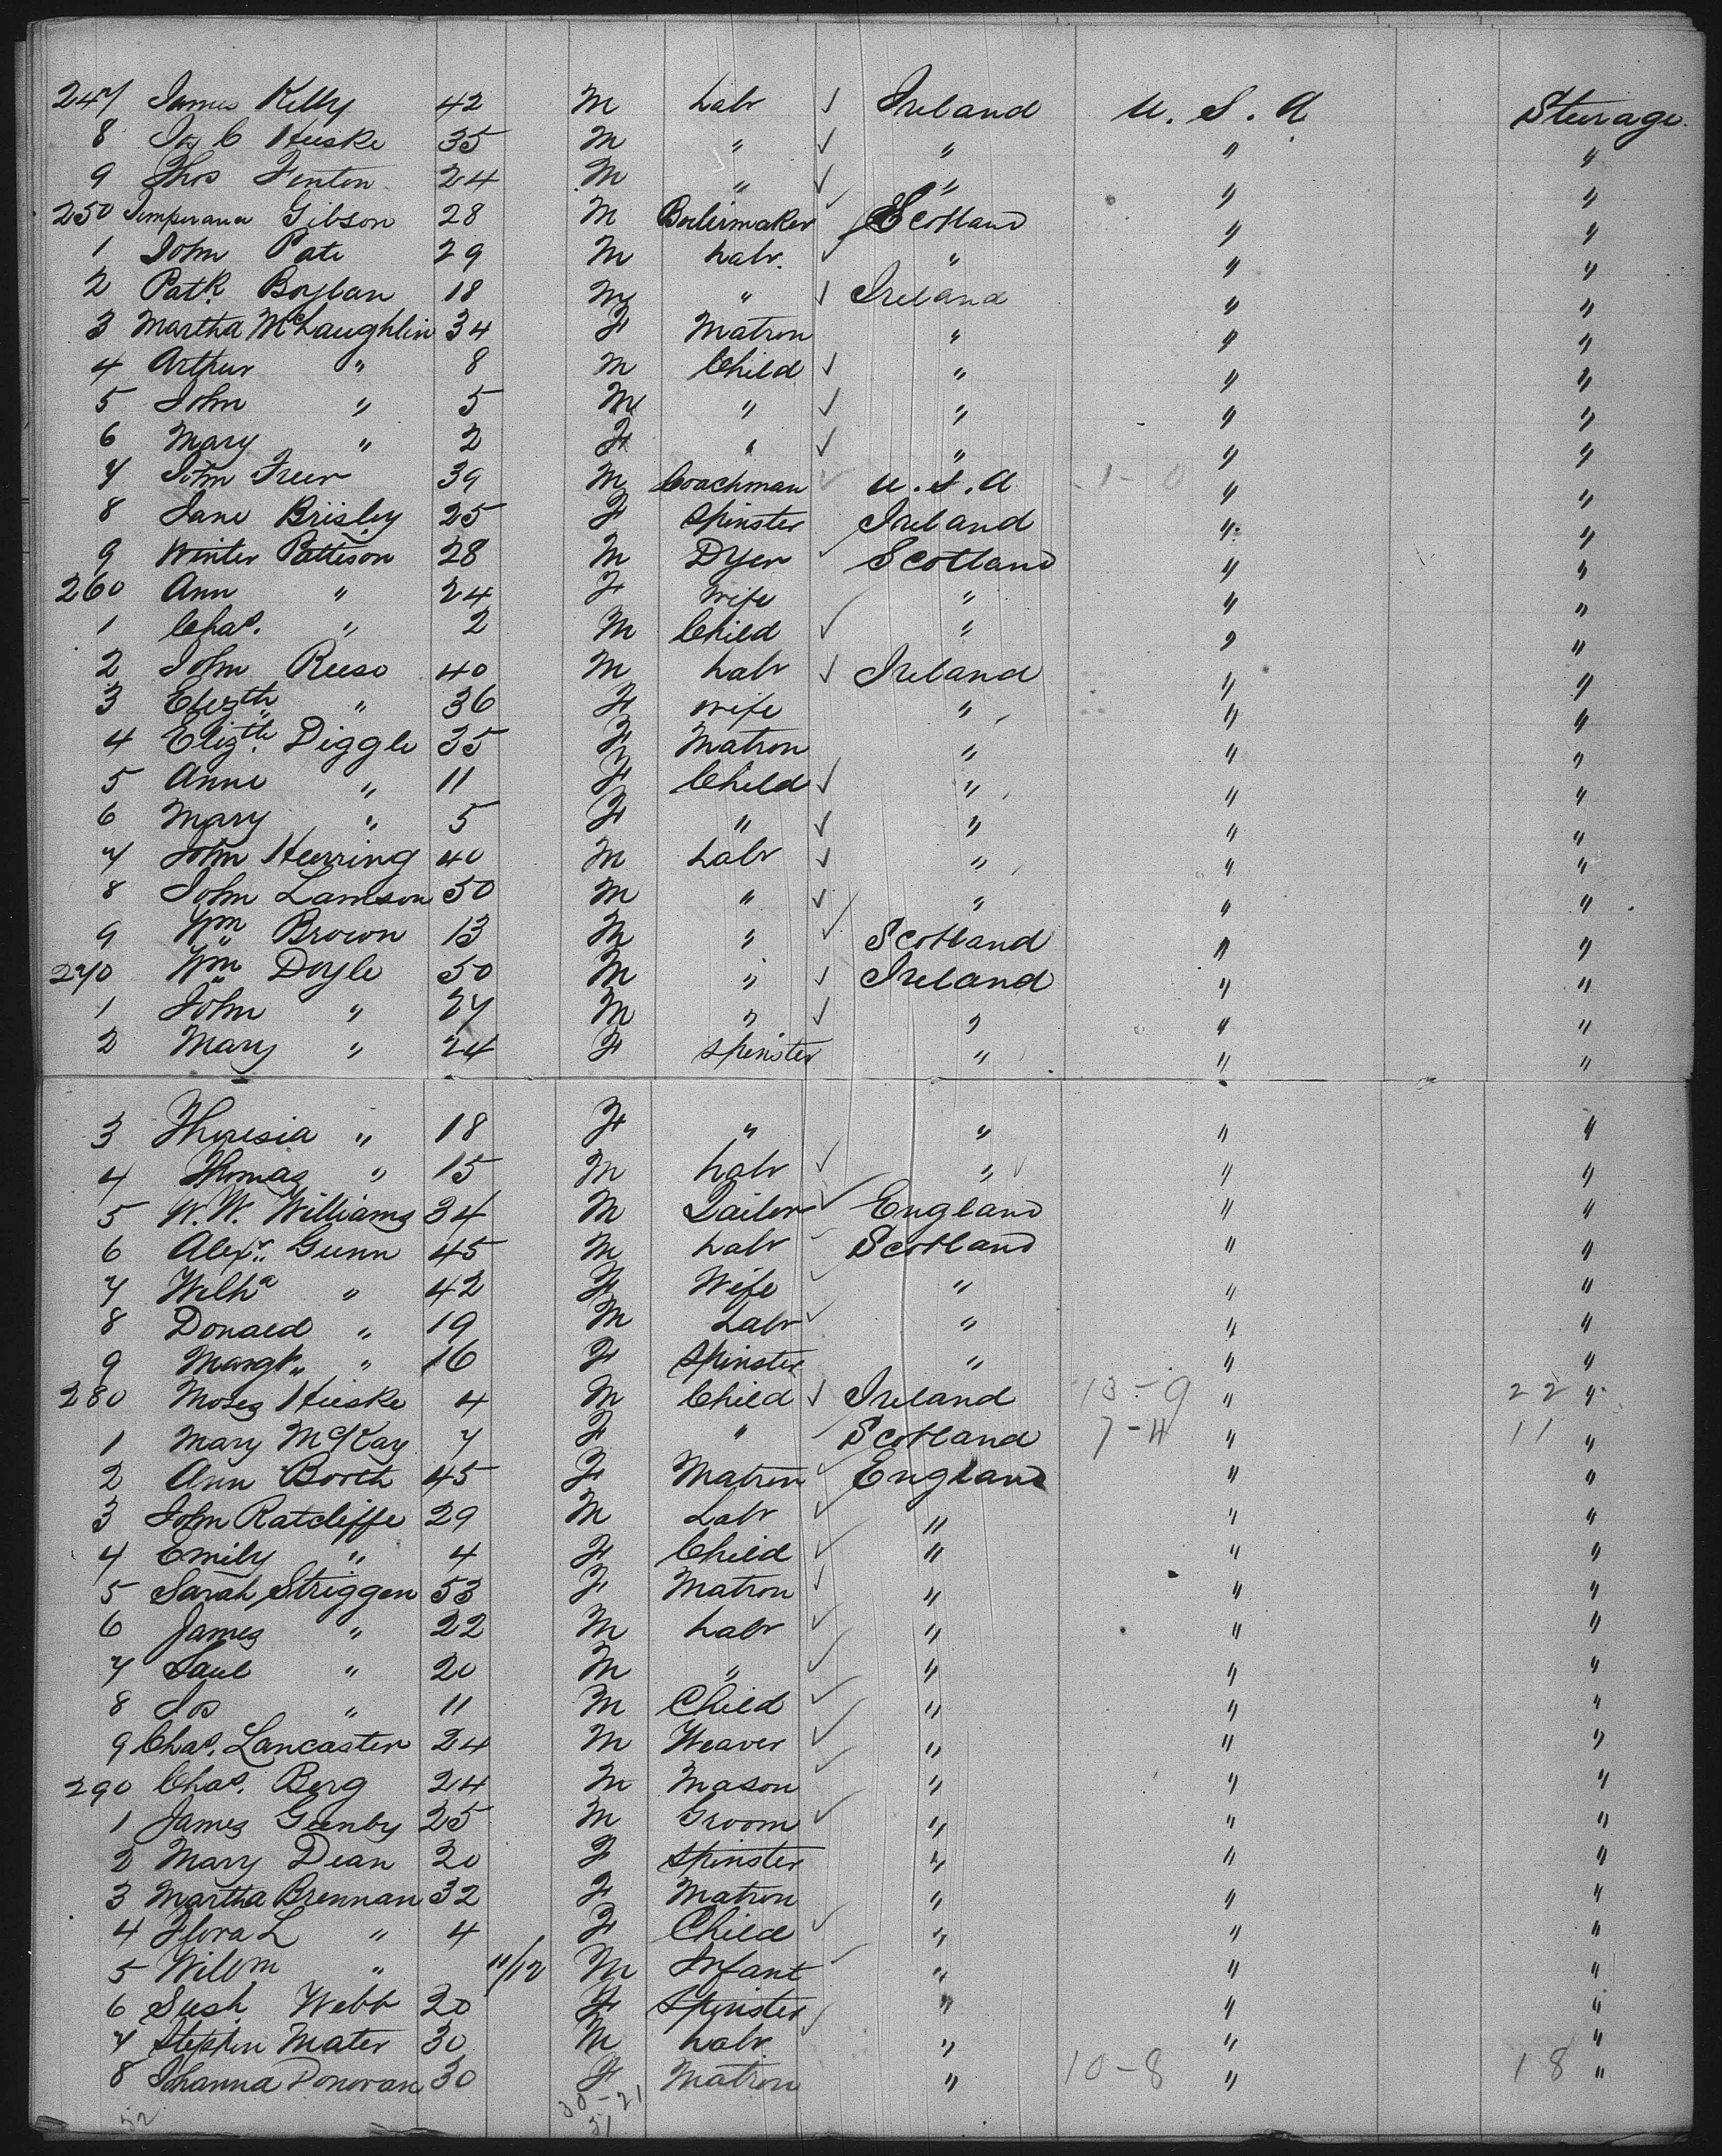 247 James Kelly 42 M Labr ✓ Ireland U. S. A Steerage.
8 Jas C Heuske 35 M " ✓ " " "
9 Thos Fenton 24 M " ✓ " " "
250 Temperance Gibson 28 M Boilermaker ✓ Scotland " "
1 John Pate 29 M Labr. ✓ " " "
2 Patk. Boylan 18 M " ✓ Ireland " "
3 Martha McLaughlin 34 F Matron " " "
4 Arthur " 8 M Child ✓ " " "
5 John " 5 M " ✓ " " "
6 Mary " 2 F " ✓ " " "
7 John Freer 39 M Coachman ✓ U.S.A 1-0 " "
8 Jane Brisley 25 F Spinster Ireland " "
9 Winter Pattison 28 M Dyer ✓ Scotland " "
260 Ann " 24 F Wife " " "
1 Chas. " 2 M Child ✓ " " "
2 John Reeso 40 M Labr ✓ Ireland " "
3 Elizth " 36 F wife " " "
4 Elizth. Diggle 35 F Matron " " "
5 Anne " 11 F Child ✓ " " "
6 Mary " 5 F " ✓ " " "
7 John Heerring 40 M Labr ✓ " " "
8 John Lamson 50 M " ✓ " " "
9 Wm Brown 13 M " ✓ Scotland " "
270 Wm Doyle 50 M " ✓ Ireland " "
1 John " 27 M " ✓ " " "
2 Mary " 24 F Spinster " " "
3 Theresia " 18 F " " " "
4 Thomas " 15 M Labr ✓ " " "
5 W. W. Williams 34 M Tailor ✓ England " "
6 Alexr. Gunn 45 M Labr ✓ Scotland " "
7 Wilha " 42 F Wife ✓ " " "
8 Donald " 19 M Labr ✓ " " "
9 Margt " 16 F Spinster " " "
280 Moses Heuske 4 M Child ✓ Ireland 13-9 " 22 "
1 Mary McKay 7 F " Scotland 7-4 " 11 "
2 Ann Booth 45 F Matron ✓ England " "
3 John Ratcliffe 29 M Labr ✓ " " "
4 Emily " 4 F Child ✓ " " "
5 Sarah Striggen 53 F Matron ✓ " " "
6 James " 22 M Labr ✓ " " "
7 Saul " 20 M " ✓ " " "
8 Jos " 11 M Child ✓ " " "
9 Chas. Lancaster 24 M Weaver ✓ " " "
290 Chas. Berg 24 M Mason ✓ " " "
1 James Geenby 25 M Groom ✓ " " "
2 Mary Dean 20 F Spinster " " "
3 Martha Brennan 32 F Matron " " "
4 Flora L " 4 F Child ✓ " " "
5 Willm " 11/12 M Infant ✓ " " "
6 Sush. Webb 20 F Spinster " " "
7 Stephen Mater 30 M Labr. ✓ " " "
8 Johanna Donovan 30 F Matron " 10-8 " 18 "
52 30-21
51